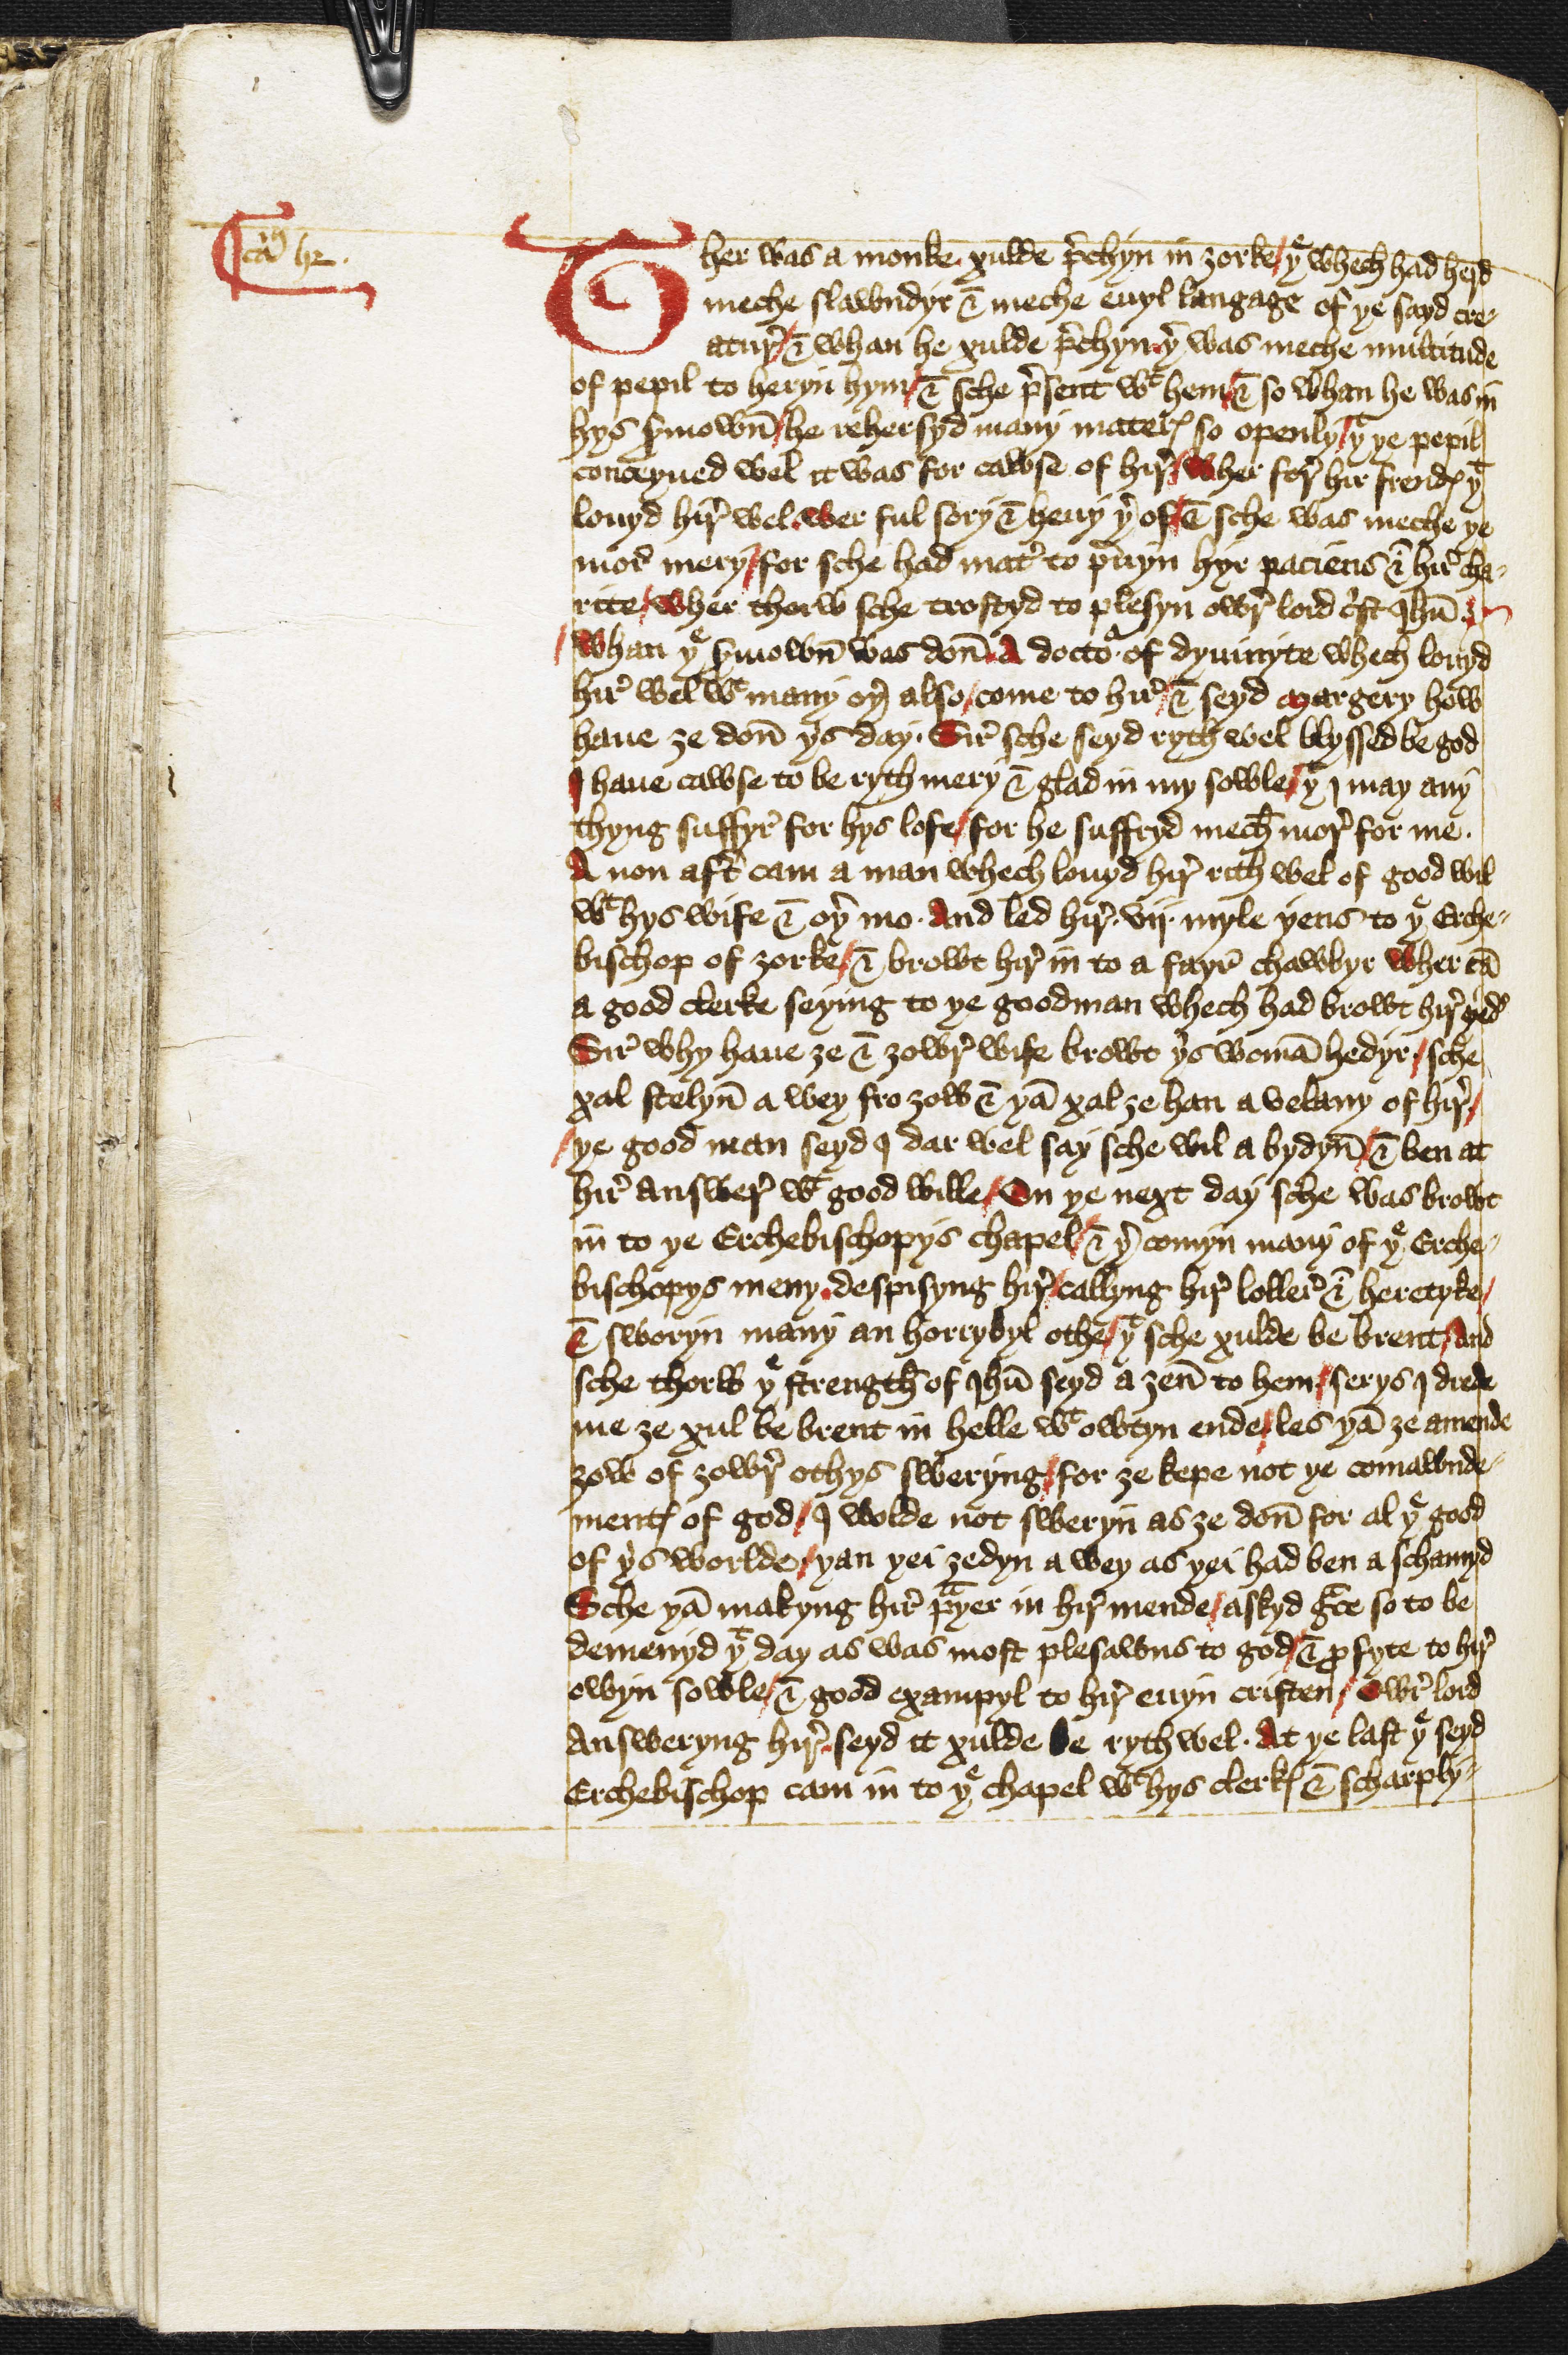 Ca. 52.
Ther was a monke xulde p̄chyn in ȝorke / yͤ whech had herd
meche slawndyr & meche euyl langage of ye sayd cre-
atur̛ / & whan he xulde p̄chyn. yr̛ was meche multitude
of pepil to heryn hym / & sche p̄sent wᵗ hem / & so whan he was in
hys s̛mown̄ / he rehersyd many mater̛ so openly / yᵗ ye pepil
conceyued wel it was for cawse of hir̛ / wher for̛ hir frendꝭ yᵗ
louyd hir̛ wel. wer ful sory & heuy yr̛ of / & sche was meche ye
mor̛ mery / for sche had mat̛ to p̛uyn hyr paciens & hir̛ cha-
rite / wher thorw sche trostyd to plesyn owr̛ lord c̛st Ihū.
/ whan yͤ s̛mown̄ was don̄. A docto͛ of dyuinyte whech louyd
hir̛ wel wᵗ many oyr̛ also / come to hir̛ / & seyd Margery how
haue ȝe don̄ y̛s day. Sir̛ sche seyd ryth wel blyssed be god
I haue cawse to be ryth mery & glad in my sowle / yᵗ I may any
thyng suffyr̛ for hys lofe / for he suffryd mech mor̛ for me.
A non aft̛ cam a man whech louyd hir̛ rith wel of good wil
wᵗ hys wife & oyr̛ mo. And led hir̛. vij. myle yens to yͤ Erche-
bischop of ȝorke / & browt hir̛ in to a fayr̛ chawbyr wher cā
a good clerke seying to ye goodman whech had browt hir̛ yed̛
Sir̛ why haue ȝe & ȝowr̛ wife browt y̛s womā hedyr. / sche
xal stelyn̄ a wey fro ȝow & yā xal ȝe han a velany of hir̛ /
/ ye good man seyd I dar wel say sche wil a bydyn̄ / & ben at
hir̛ answer̛ wᵗ good wille / On ye next day sche was browt
in to ye Erchebischopys chapel / & yr̛ comyn many of yͤ Erche-
bischopys meny. despisyng hir̛ / callyng hir̛ loller̛ & heretyke /
& sworyn many an horrybyl othe / yᵗ sche xulde be brent / And
sche thorw yͤ strength of Ihū seyd a ȝen̄ to hem / serys I drede
me ȝe xul be brent in helle wᵗ owtyn ende / les yā ȝe amende
ȝow of ȝowr̛ othys sweryng / for ȝe kepe not ye comawnde-
mentꝭ of god / I wolde not sweryn as ȝe don̄ for al yͤ good
of y̛s worlde / yan yei ȝedyn a wey as yei had ben a schamyd
Sche yā makyng hir̛ pᵃyer in hir̛ mende / askyd gᵃce so to be
demenyd yᵗ day as was most plesawns to god / & ꝓfyte to hir̛
owyn sowle / & good exampyl to hir̛ euyn cristen / Owr̛ lord
answeryng hir̛. seyd it xulde be ryth wel. At ye last yͤ seyd
Erchebischop cam in to yͤ chapel wᵗ hys clerkꝭ & scharply-